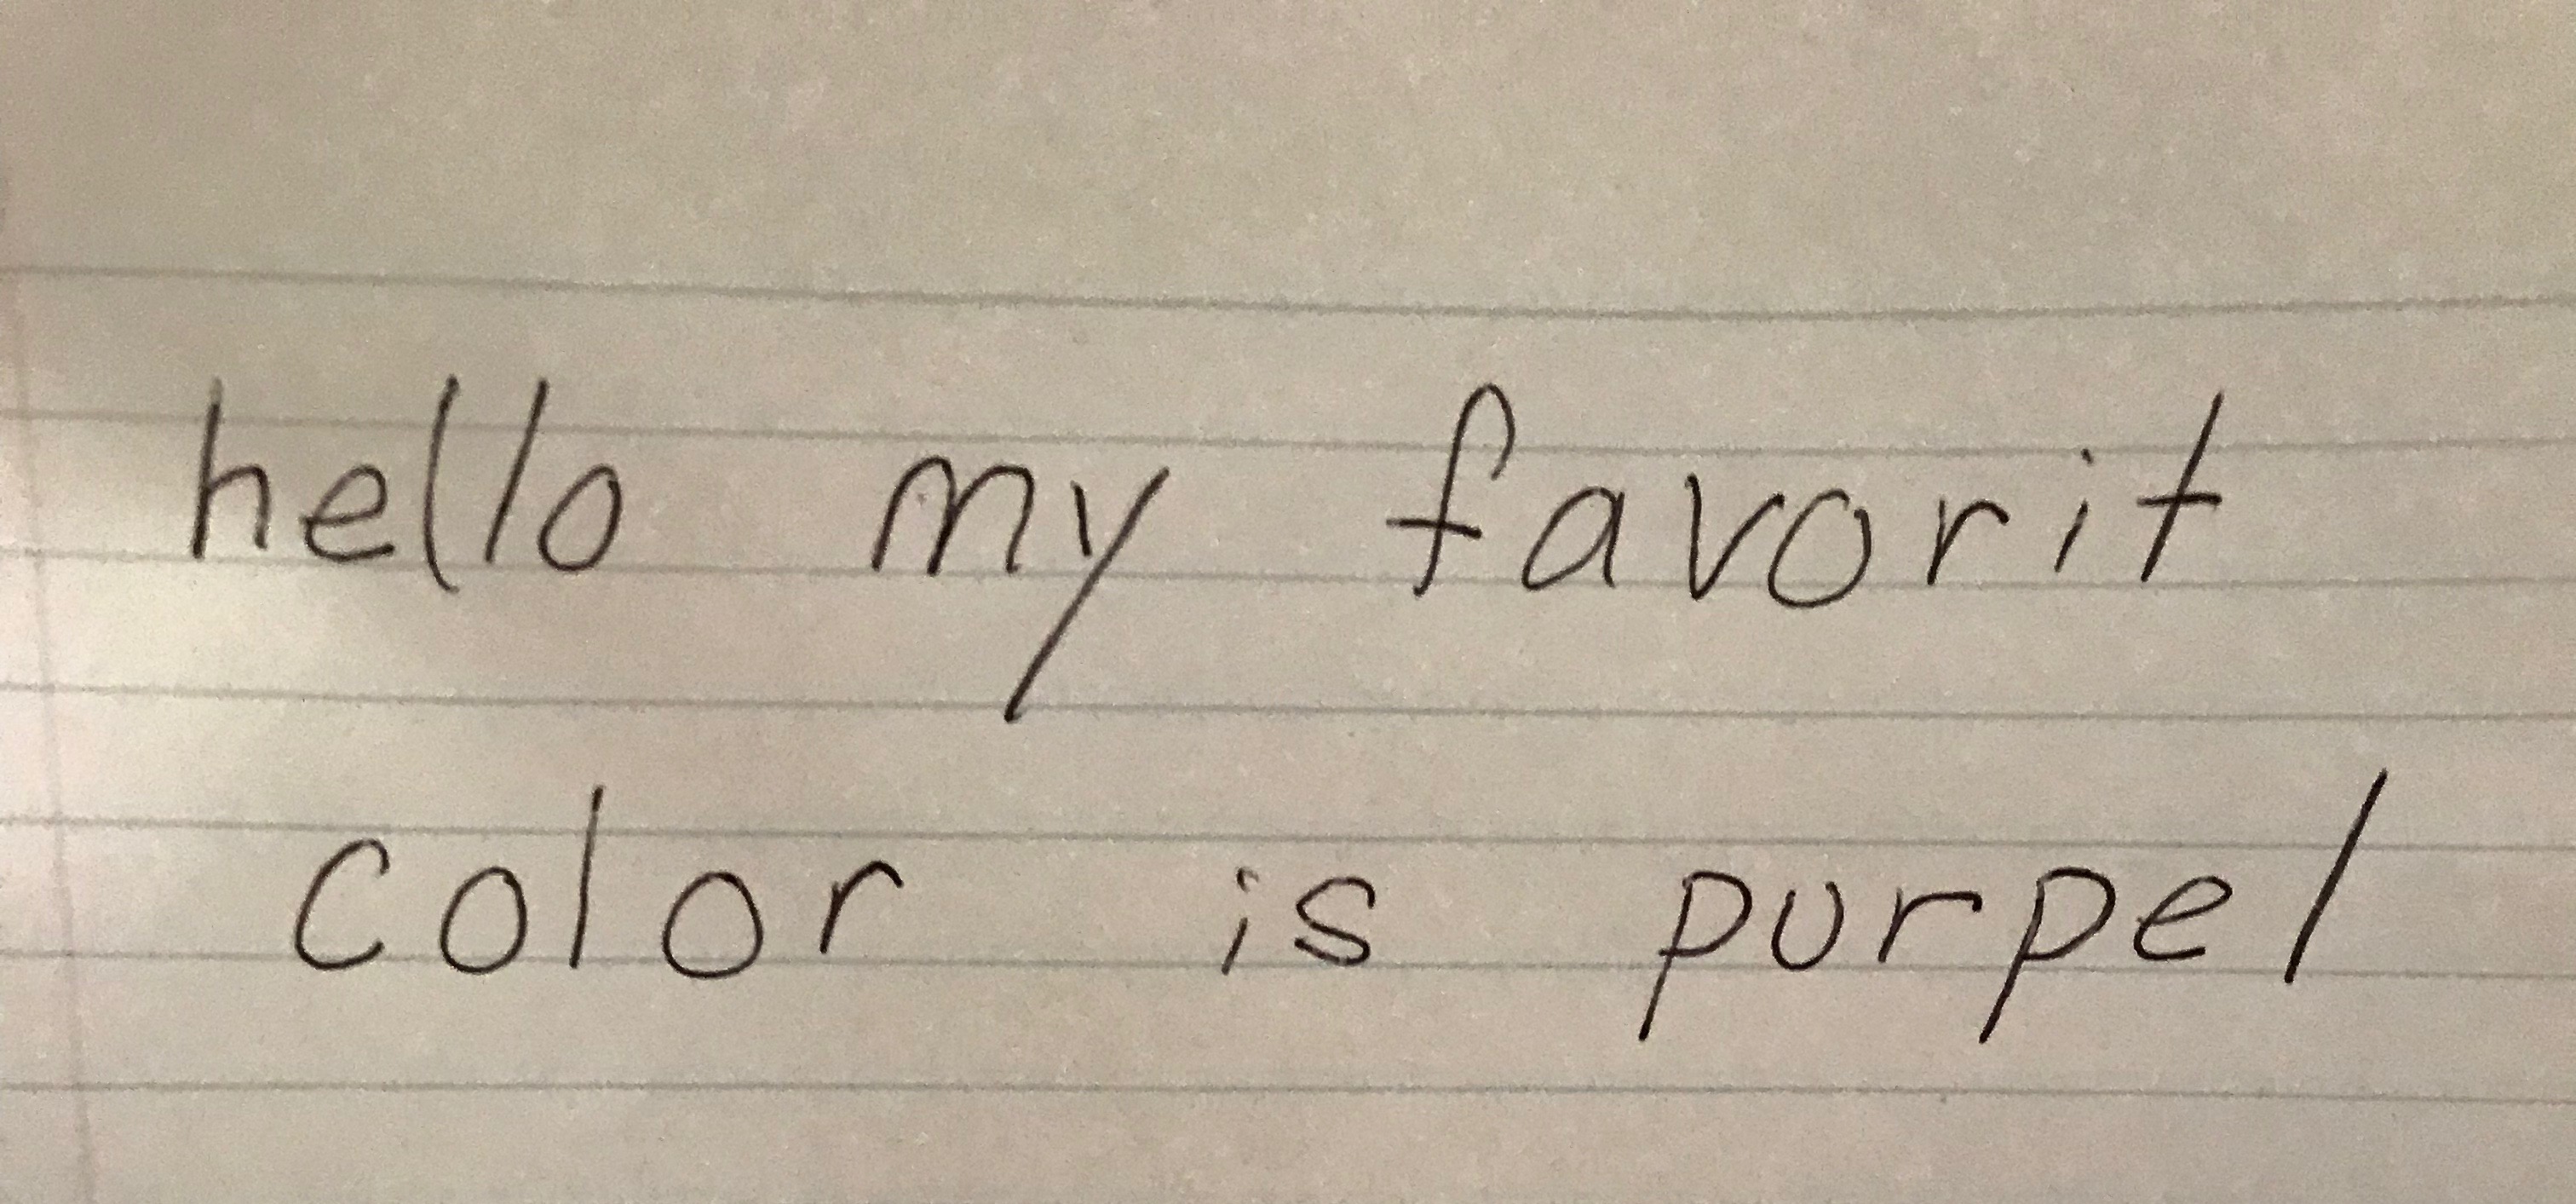 hello my favorit
color is purpel